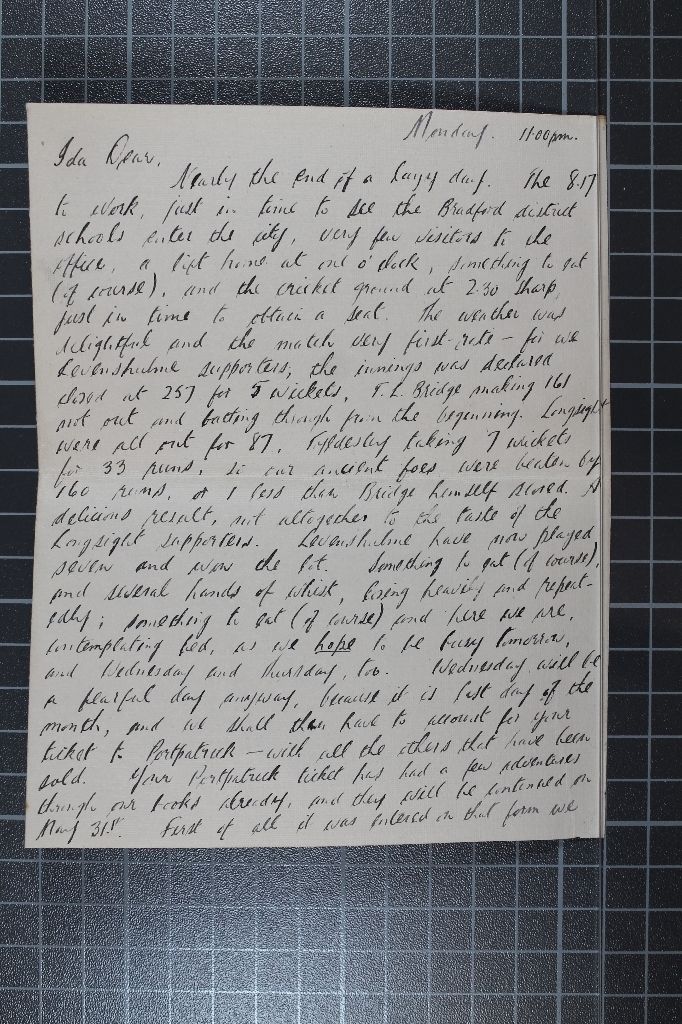 Monday. 11.00pm.
Ida Dear,
Nearly the end of a lazy day. The 8.17
to work, just in time to see the Bradford district
schools enter the city, very few visitors to the
office, a lift home at one o'clock, something to eat
(of course), and the cricket ground at 2.30 sharp,
just in time to obtain a seat. The weather was
delightful and the match very first-rate - for we
Levenshulme supporters; the innings was declared
closed at 257 for 5 wickets, T. L. Bridge making 161
not out and batting through from the beginning. Longsight
were all out for 87, Tyldesley taking 7 wickets
for 33 runs, so our ancient foes were beaten by
160 runs, or 1 less than Bridge himself scored. A
delicious result, not altogether to the taste of the
Longsight supporters. Levenshulme have now played
seven and won the lot. Something to eat (of course),
and several hands of whist, losing heavily and repeat-
edly; something to eat (of course) and here we are,
contemplating bed, as we hope to be busy tomorrow,
and Wednesday and Thursday, too. Wednesday will be
a fearful day anyway, because it is last day of the
month, and we shall then have to account for your
ticket to Portpatrick - with all the others that have been
sold. Your Portpatrick ticket has had a few adventures
through our books already, and they will be continued on
May 31st. First of all it was entered on that form we